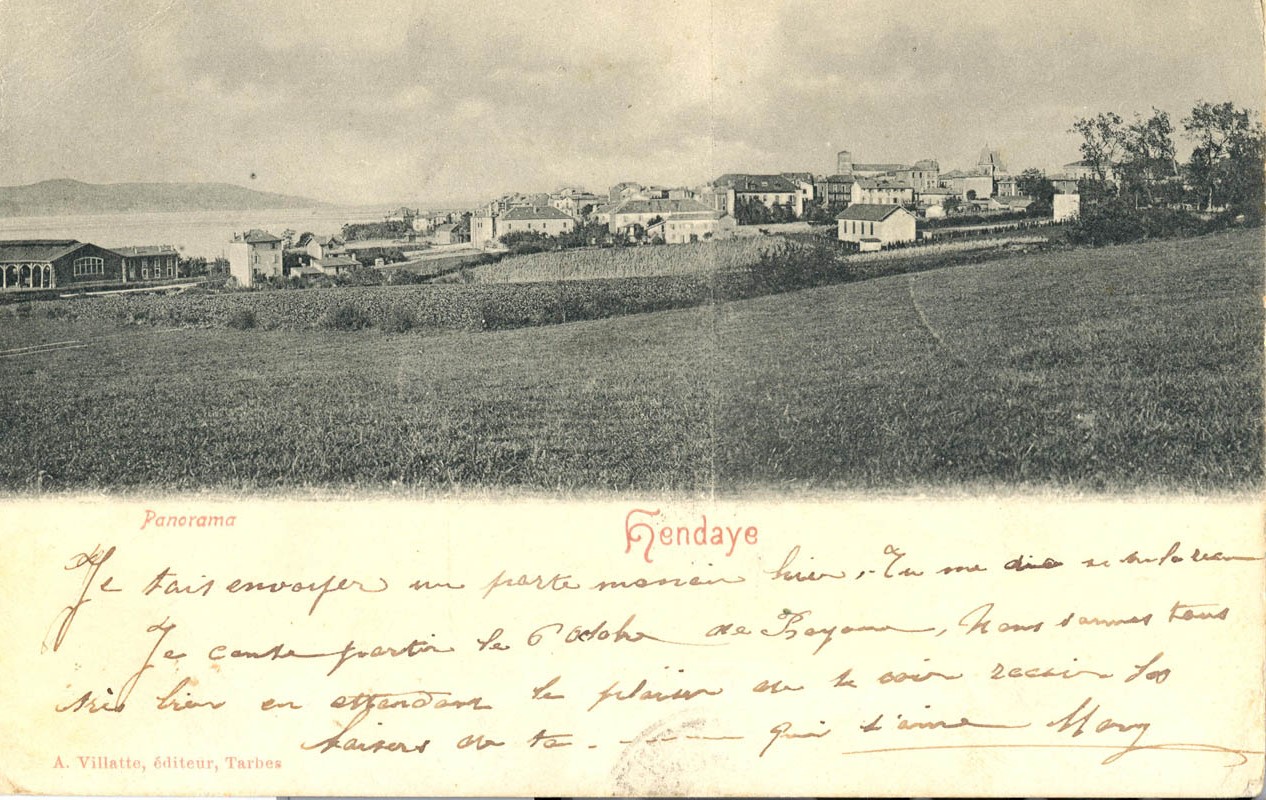 Panorama
Hendaye
Je tais envoyer un porte monaie hier, Tu me dia si tu la recu
Je conte partir le 6 Octobre de Bayonne, Nous sommes tous
très bien en attendant le plaisir de te voir recoir 100
baisers de ta qui t'aime Mary
A. Villatte, éditeur, Tarbes